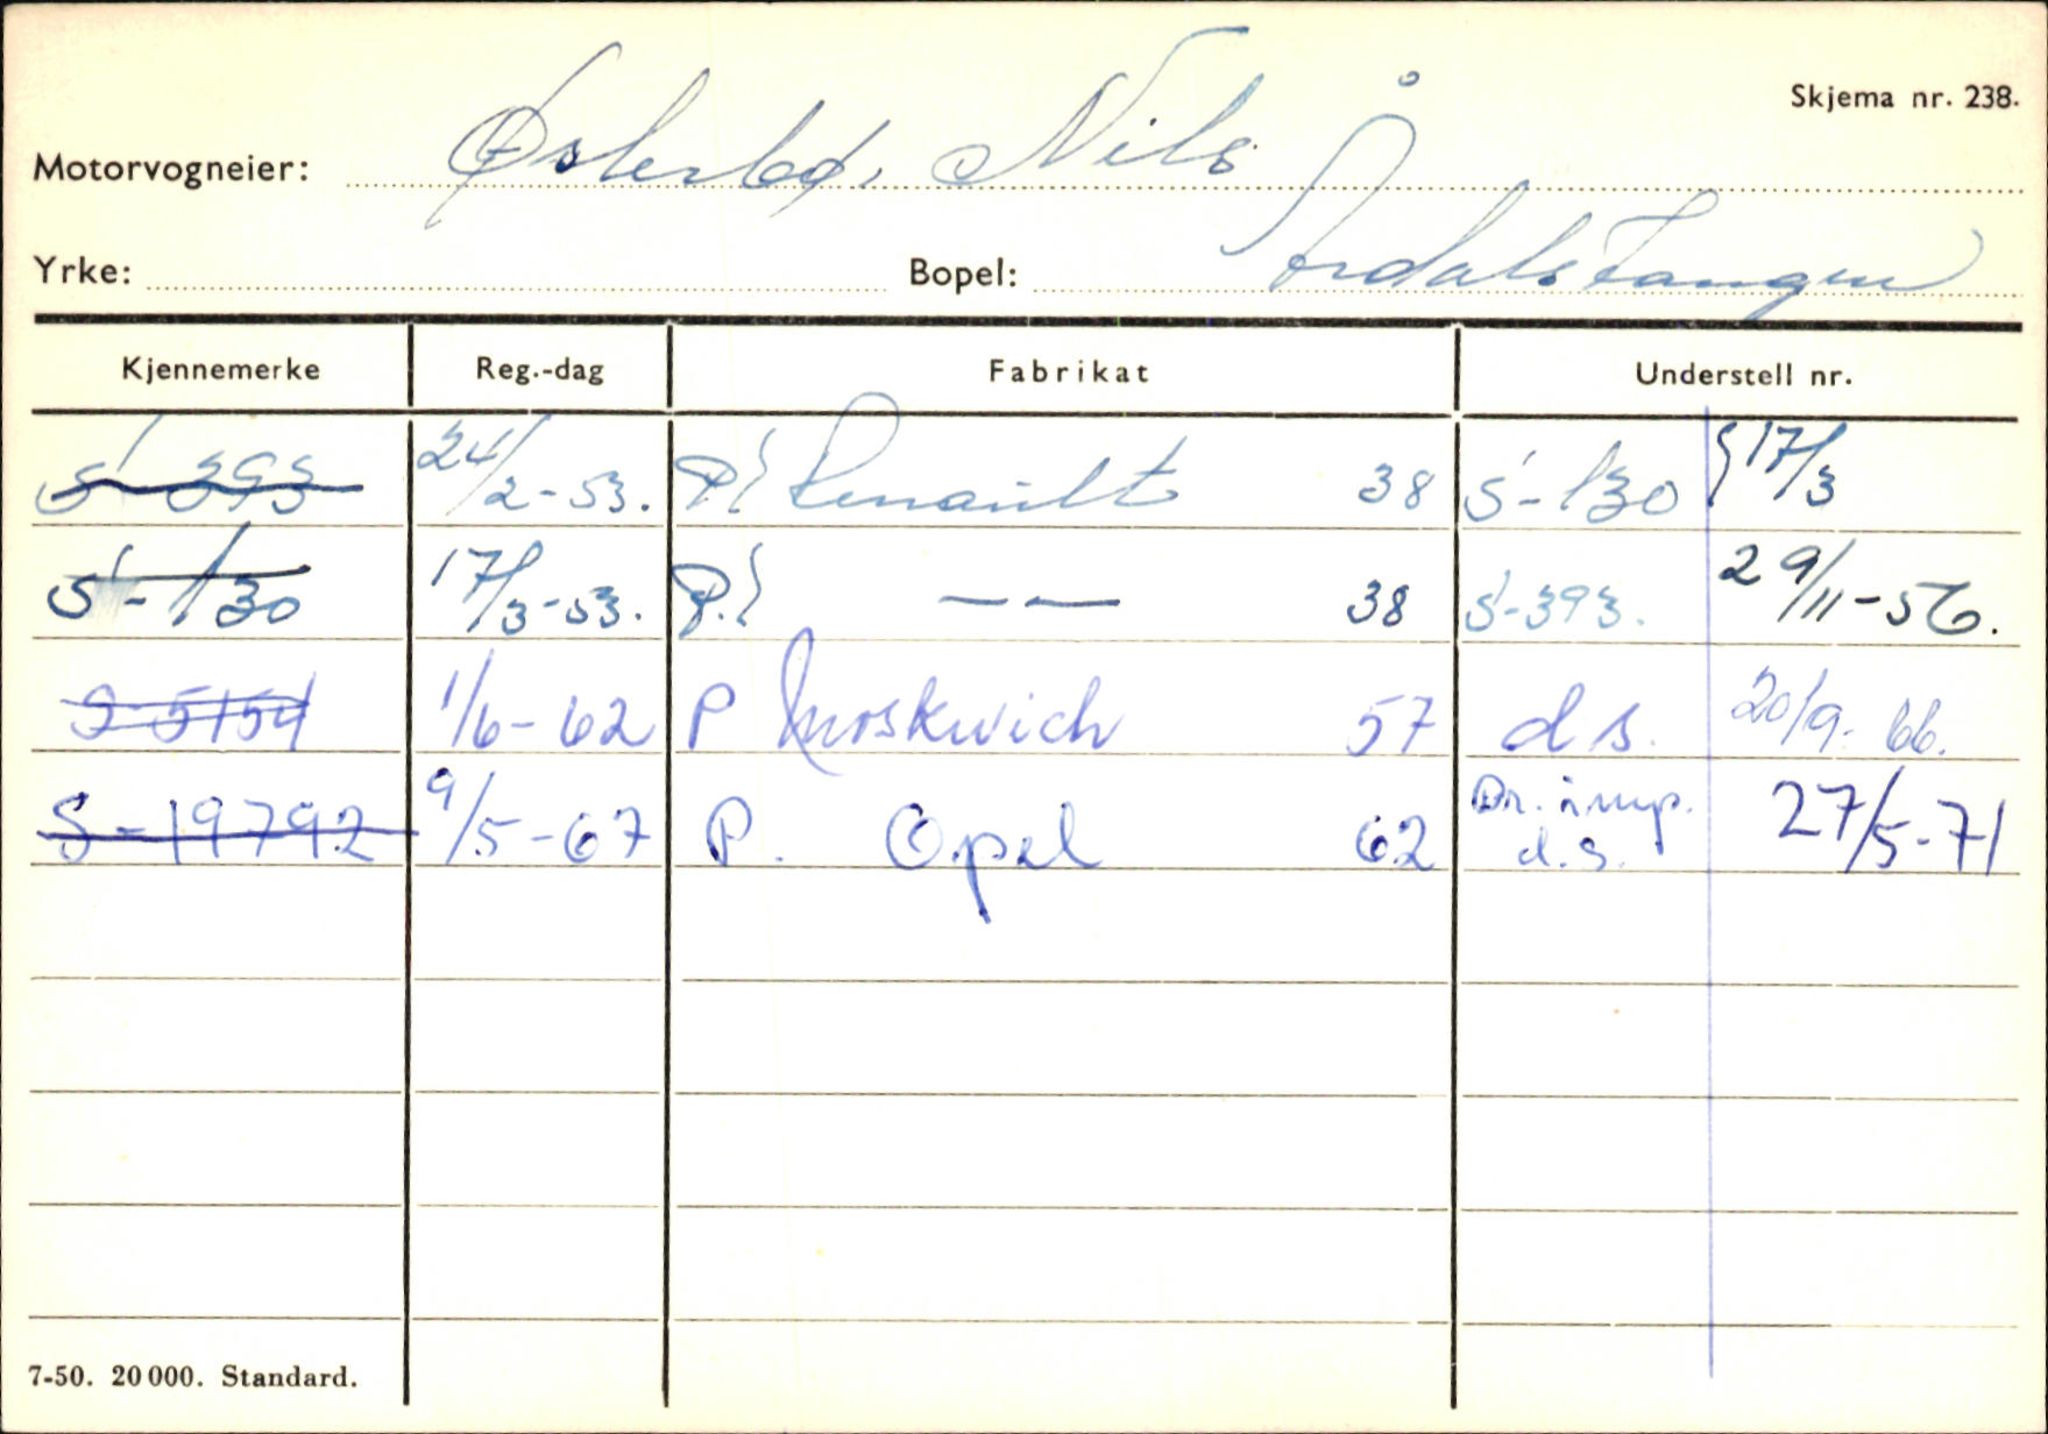 Skjema nr. 238.
Motorvogneier: Østerbø, Nils
Yrke: Bopel: Årdalstangen
Kjennemerke Reg.-dag Fabrikat Understell nr.
S-393 24/2-53. P{ Renault 38 S-130 }17/3
S-130 17/3-53. P.{ — — 38 S-393. 29/11-56.
S-5154 1/6-62 P Moskwich 57 d s. 20/9-66.
S-19792 9/5-67 P. Opel 62 Dr. imp. d.s. 27/5-71
7-50. 20 000. Standard.